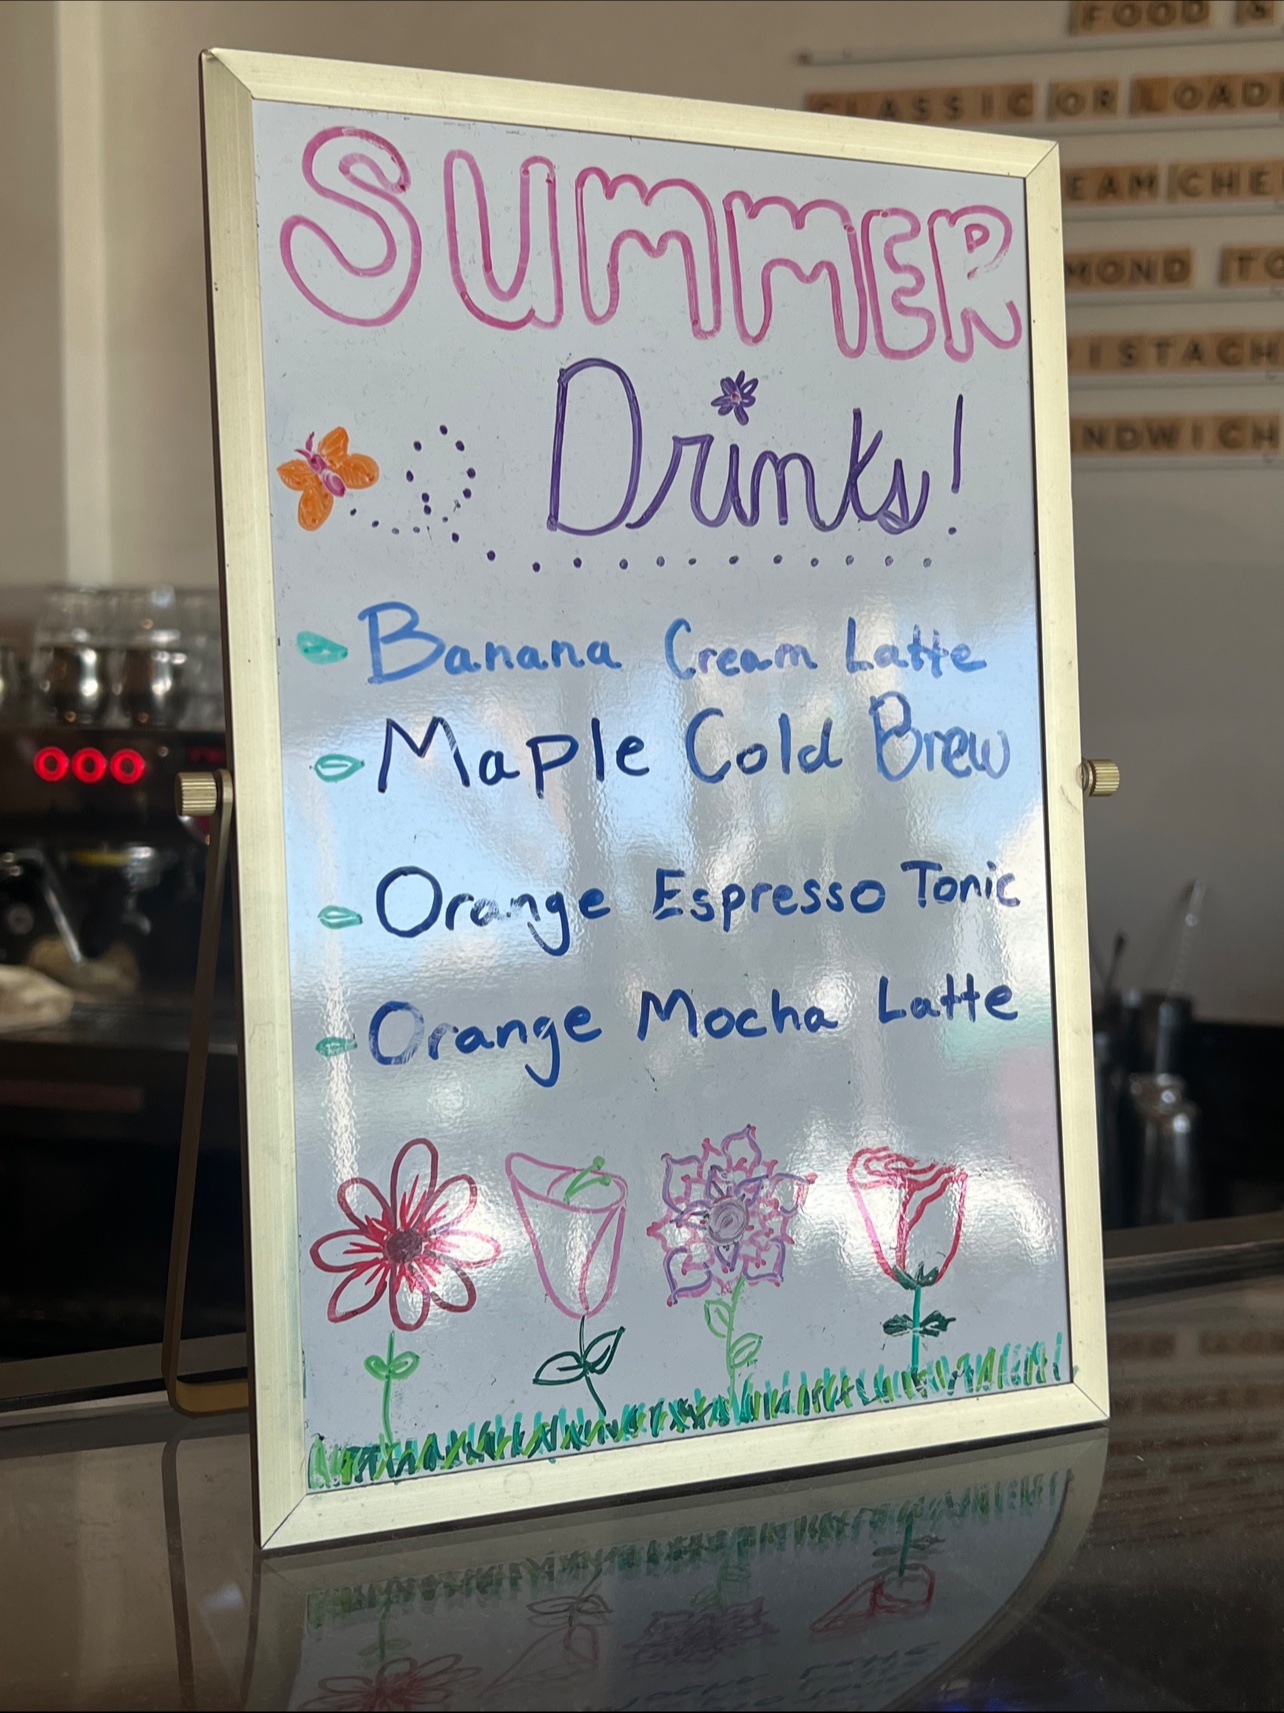 SUMMER
Drinks!
Banana Cream Latte
Maple Cold Brew
Orange Espresso Tonic
Orange Mocha Latte
FOOD &
CLASSIC OR LOAD
EAM CHE
MOND TO
ISTACH
NDWICH